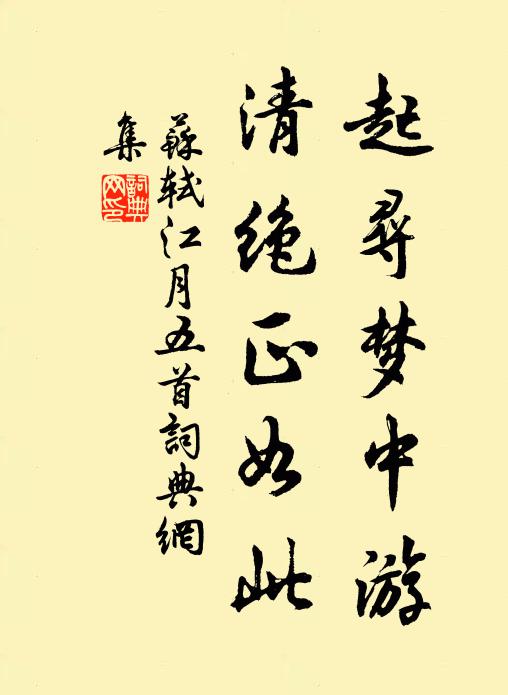 起尋梦中游
清绝正如此
蘇軾江月五首詞典網
集
詞典
网印